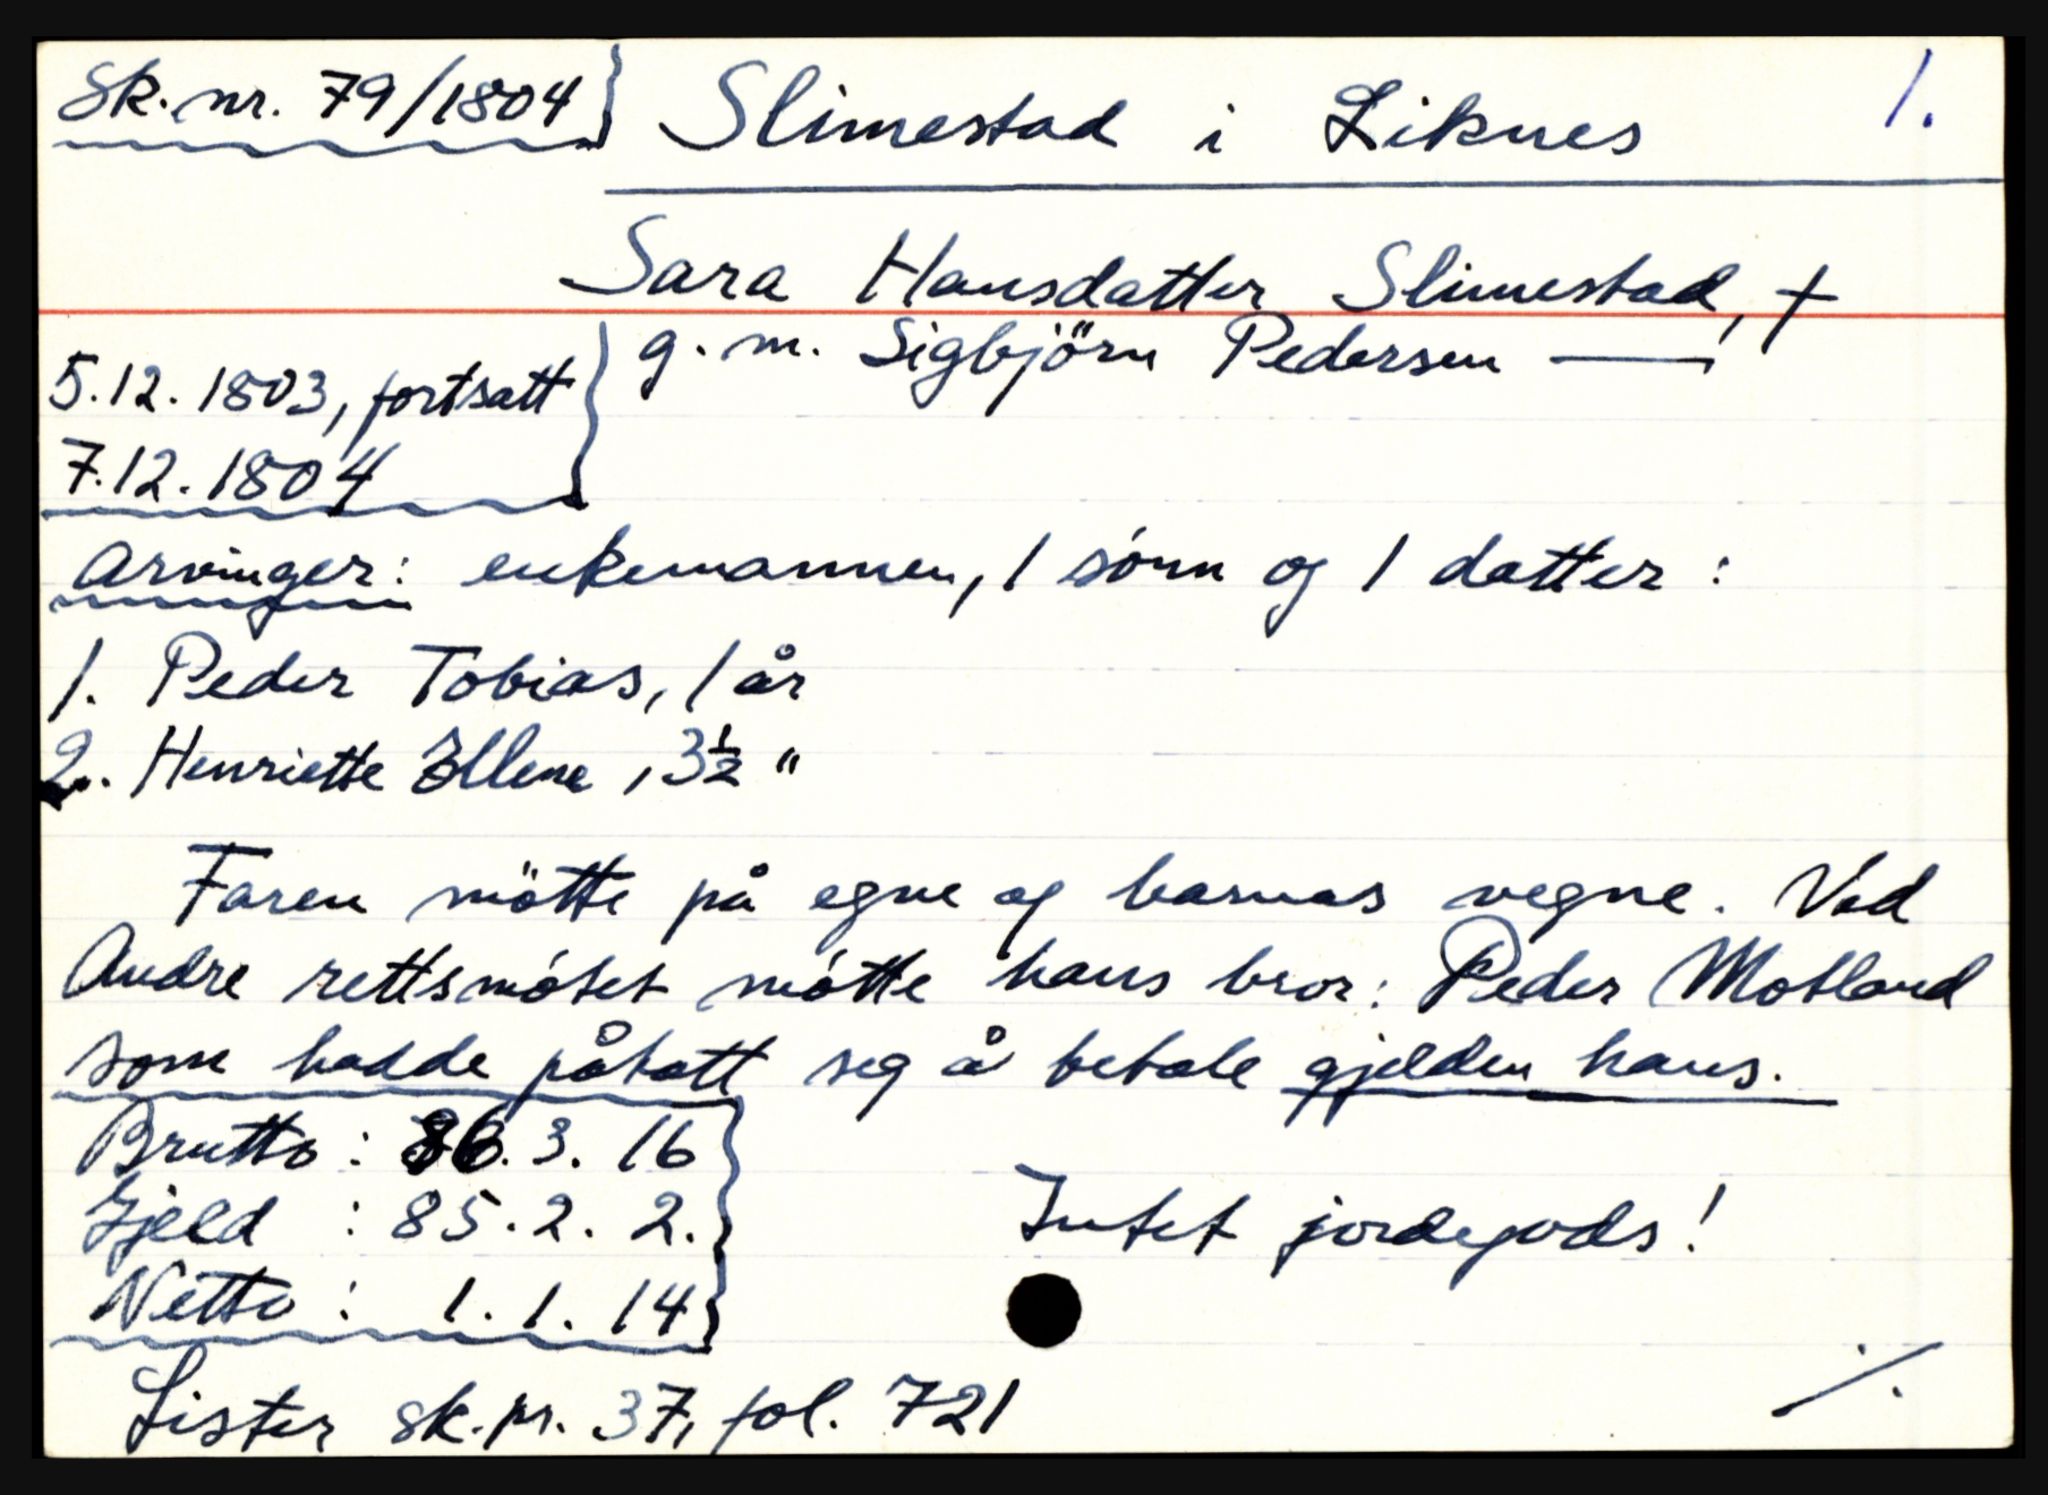 Sk. nr. 79/1804 Slimestad i Liknes 1.
Sara Hansdatter Slimestad, +
g. m. Sigbjörn Pedersen —
5.12.1803, fortsatt
7.12.1804
Arvinger: enkemannen, 1 sónn og 1 datter:
1. Peder Tobias, 1 år
2. Henriette Ellene, 3½ "
Faren mötte på egne og barnas vegne. Ved
Andre rettsmótet mótte hans bror: Peder Motland
som hadde påtatt seg å betale gjelden hans.
Brutto: 86. 3. 16
Gjeld : 85. 2. 2.
Intet jordegods!
Netto: 1. 1. 14
Lister sk. pr. 37, fol. 721
./.